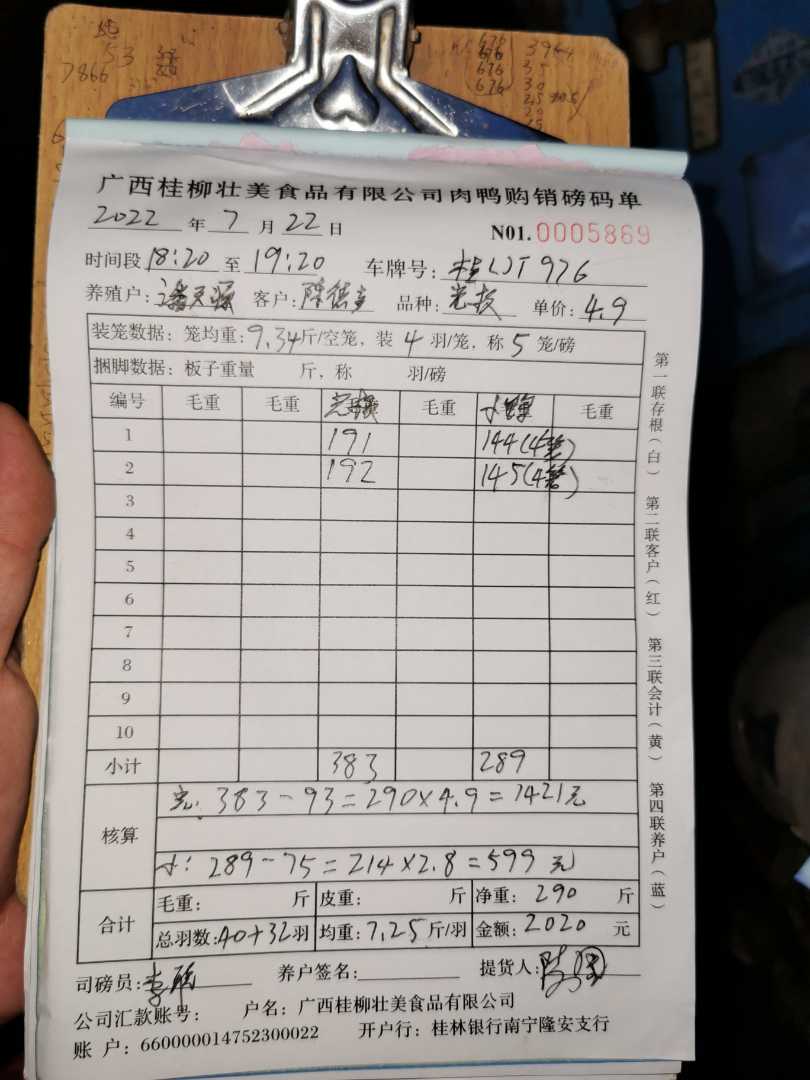 53
7866
676
676
676
676
3964
35
30
25
20
广西桂柳壮美食品有限公司肉鸭购销磅码单
2022 年 7 月 22 日 N01.0005869
时间段 18:20 至 19:20 车牌号: 桂 976
养殖户: 客户: 陈德 品种: 单价: 4.9
装笼数据: 笼均重: 9.34 斤/空笼, 装 4 羽/笼, 称 5 笼/磅
捆脚数据: 板子重量 斤, 称 羽/磅
编号 毛重 毛重 毛重 毛重
1 191 144(4笼)
2 192 145(4笼)
3
4
5
6
7
8
9
10
小计 383 289
核算
383-93=290×4.9=1421元
小: 289-75=214×2.8=599元
合计
毛重: 斤 皮重: 斤 净重: 290 斤
总羽数: 40+32 羽 均重: 7.25 斤/羽 金额: 2020 元
司磅员: 李 养户签名: 提货人: 陈
公司汇款账号: 户名: 广西桂柳壮美食品有限公司
账 户: 660000014752300022 开户行: 桂林银行南宁隆安支行
第一联存根(白) 第二联客户(红) 第三联会计(黄) 第四联养户(蓝)